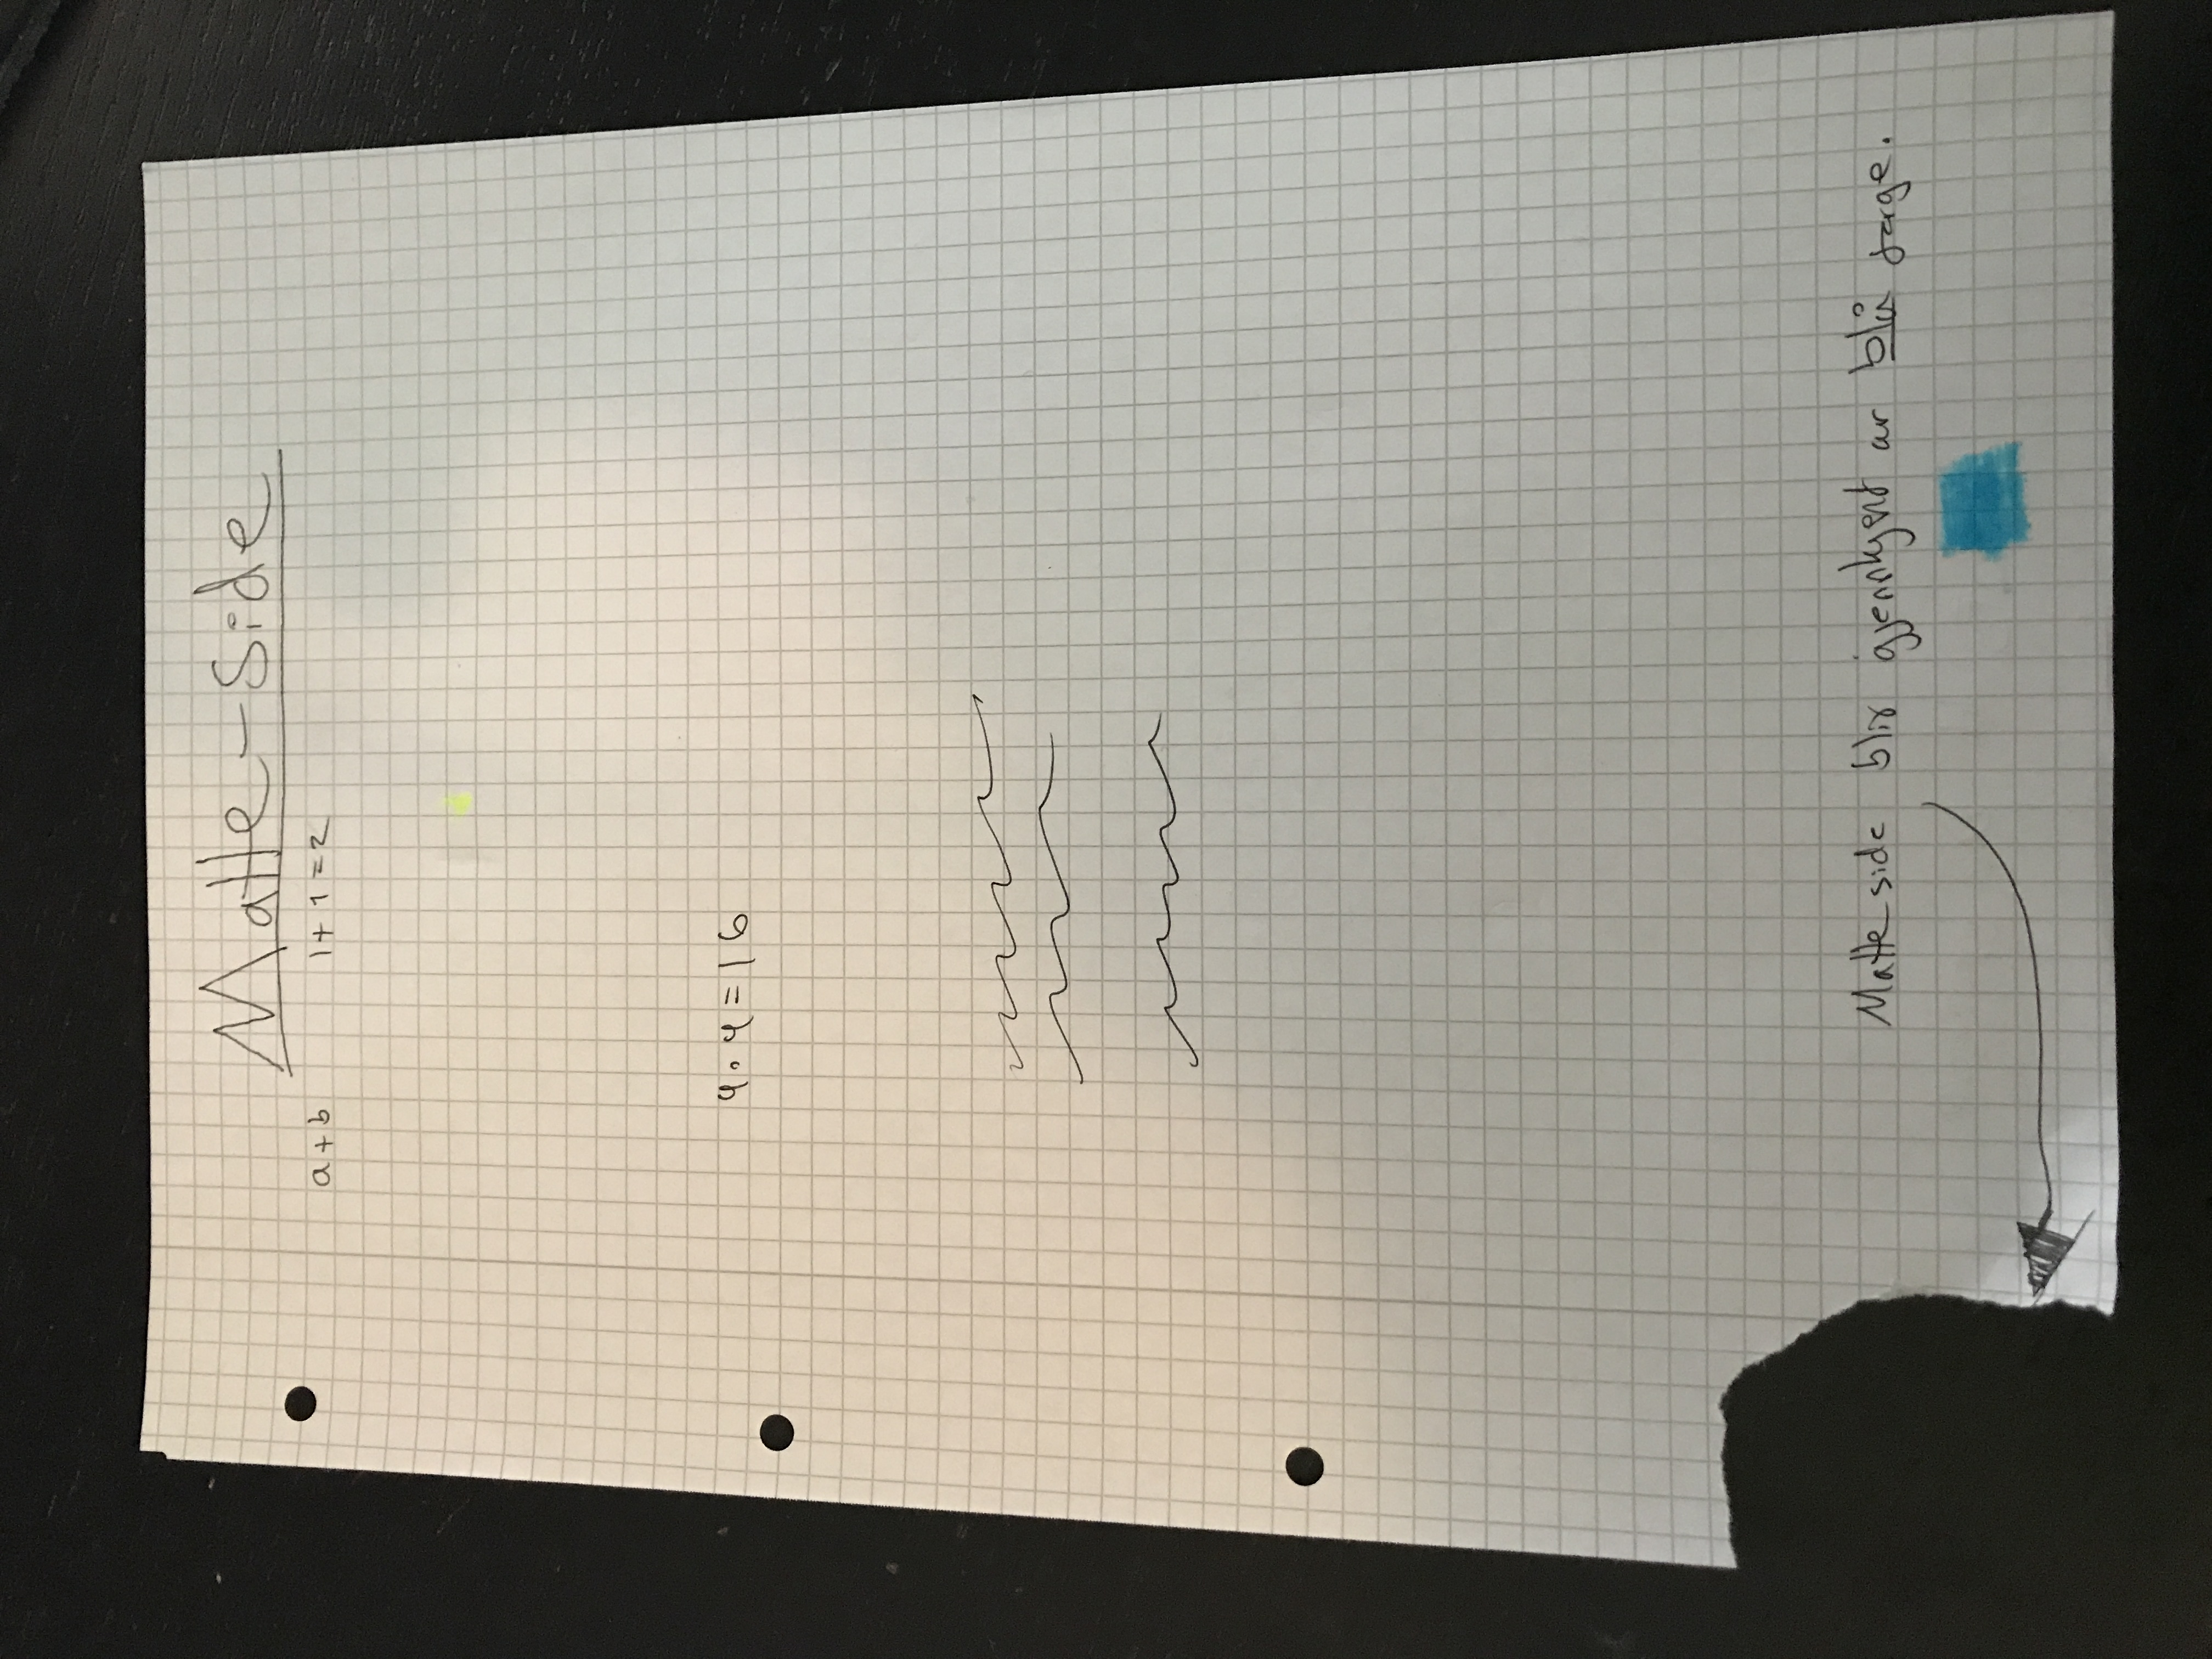 Matte-Side
a+b 1+1=2
4·4=16
Matte side blir gjennkjent av blå farge.